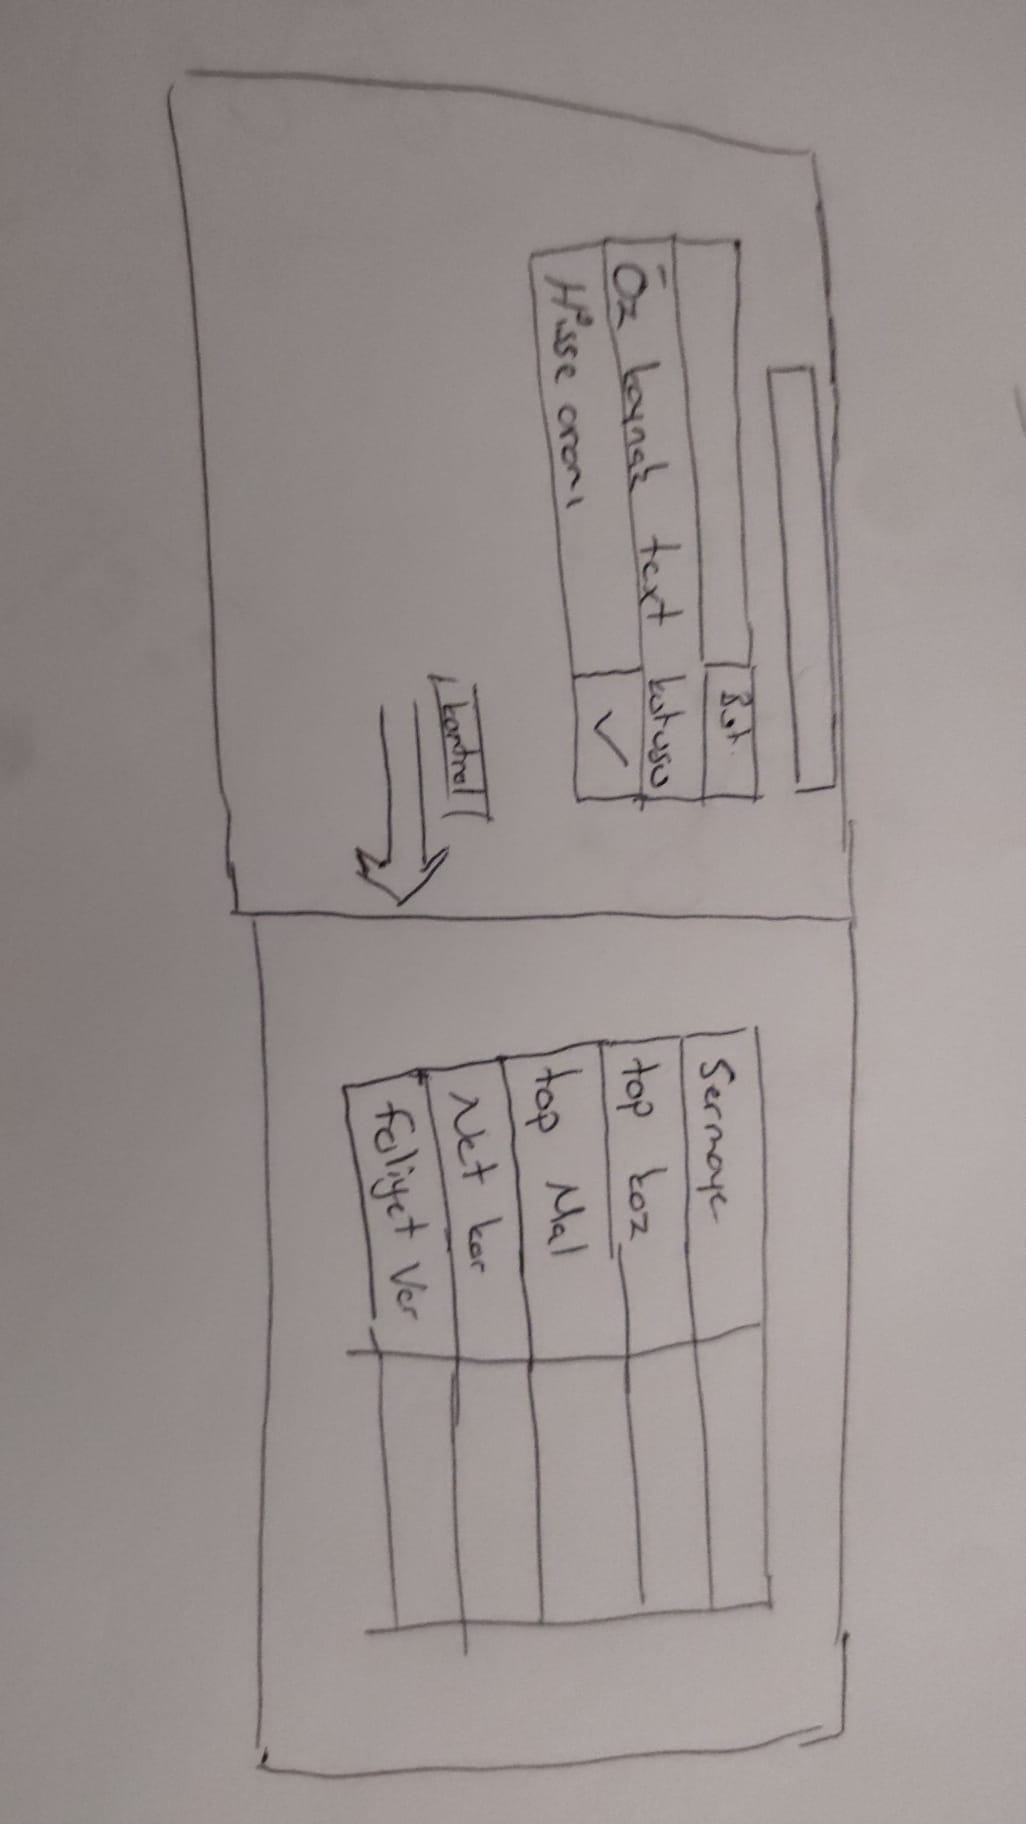 But.
Öz kaynak text kutusu
Hisse oranı
kontrol
Sermaye
top koz
top Mal
Net kar
faliyet Ver